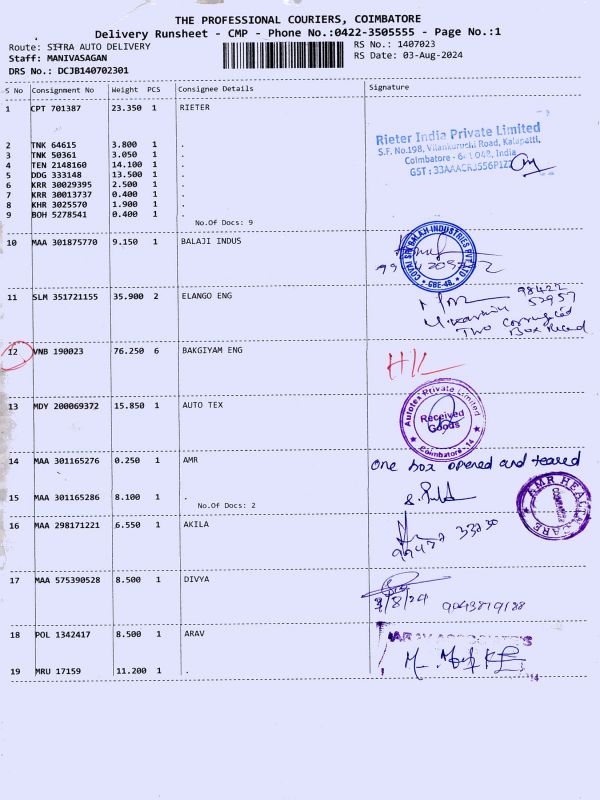 THE PROFESSIONAL COURIERS, COIMBATORE
Delivery Runsheet - CMP - Phone No.:0422-3505555 - Page No.:1
Route: SITRA AUTO DELIVERY
RS No.: 1407023
Staff: MANIVASAGAN
RS Date: 03-Aug-2024
DRS No.: DCJB140702301
S No Consignment No Weight PCS Consignee Details Signature
1 CPT 701387 23.350 1 RIETER
Rieter India Private Limited
S.F. No.198, Vilankuruchi Road, Kalapatti,
Coimbatore - 641 048, India
2 TNK 64615 3.800 1 .
3 TNK 50361 3.050 1 .
4 TEN 2148160 14.100 1 .
5 DDG 333148 13.500 1 .
6 KRR 30029395 2.500 1 .
7 KRR 30013737 0.400 1 .
8 KHR 3025570 1.900 1 .
9 BOH 5278541 0.400 1 .
No.Of Docs: 9
10 MAA 301875770 9.150 1 BALAJI INDUS
11 SLM 351721155 35.900 2 ELANGO ENG
98422
52957
Two Corrugated
Box Received
12 VNB 190023 76.250 6 BAKGIYAM ENG
13 MDY 200069372 15.850 1 AUTO TEX
Autotex Private Limited
Received
Goods
Coimbatore - 14
14 MAA 301165276 0.250 1 AMR
One box opened and teared
15 MAA 301165286 8.100 1 .
No.Of Docs: 2
AMR HEALTH CARE
16 MAA 298171221 6.550 1 AKILA
33230
17 MAA 575390528 8.500 1 DIVYA
3/8/24
18 POL 1342417 8.500 1 ARAV
19 MRU 17159 11.200 1 .